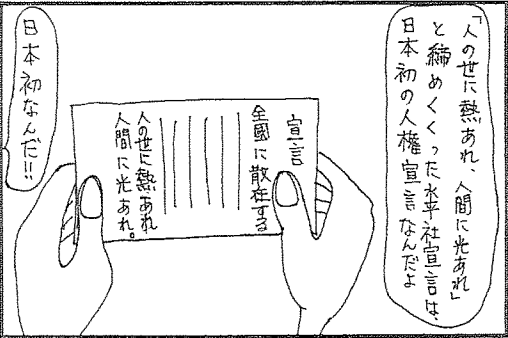 「人の世に熱あれ、人間に光あれ」
と締めくくった水平社宣言は、
日本初の人権宣言なんだよ
宣言
全國に散在する
人の世に熱あれ
人間に光あれ。
日本初なんだ!!